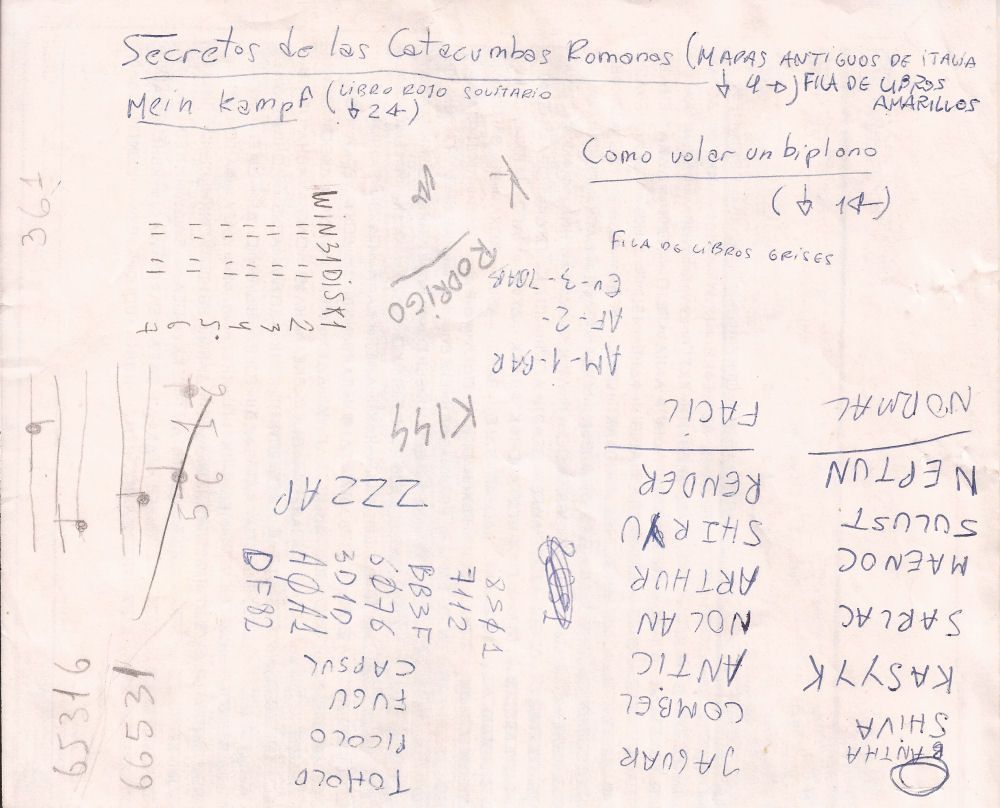 Secretos de las Catacumbas Romanas (MAPAS ANTIGUOS DE ITALIA
↓ 4→) FILA DE LIBROS
AMARILLOS
Mein Kampf (LIBRO ROJO SOLITARIO
↓ 2→)
Como volar un biplano
(↓ 1→)
FILA DE LIBROS GRISES
361
WIN31DISK1
" " 2
" " 3
" " 4
" " 5
" " 6
" " 7
K
RODRIGO
AM-1-BAR
AF-2-
EV-3-
K144
ZZZAP
NORMAL
NEPTUN
SULUST
MAENOC
SARLAC
KASYYK
SHIVA
BANTHA
FACIL
RENDER
SHIRYU
ARTHUR
NOLAN
ANTIC
COMBEL
JAGUAR
85Ø1
7112
BB3F
6Ø76
3D1D
AØA1
DF82
CAPSUL
FUGU
PICOLO
TOHOLD
65316
66531